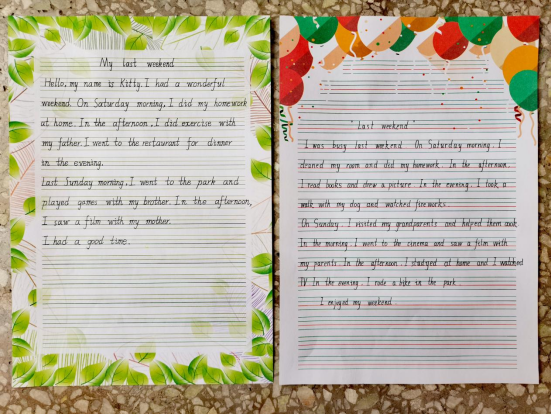 My last weekend
Hello, my name is Kitty. I had a wonderful
weekend. On Saturday morning, I did my homework
at home. In the afternoon, I did exercise with
my father. I went to the restaurant for dinner
in the evening.
Last Sunday morning, I went to the park and
played games with my brother. In the afternoon,
I saw a film with my mother.
I had a good time.
"Last weekend"
I was busy last weekend. On Saturday morning, I
cleaned my room and did my homework. In the afternoon,
I read books and drew a picture. In the evening, I took a
walk with my dog and watched fireworks.
On Sunday, I visited my grandparents and helped them cook
In the morning. I went to the cinema and saw a film with
my parents. In the afternoon. I studyed at home and I watched
TV In the evening. I rode a bike in the park
I enjoyed my weekend.